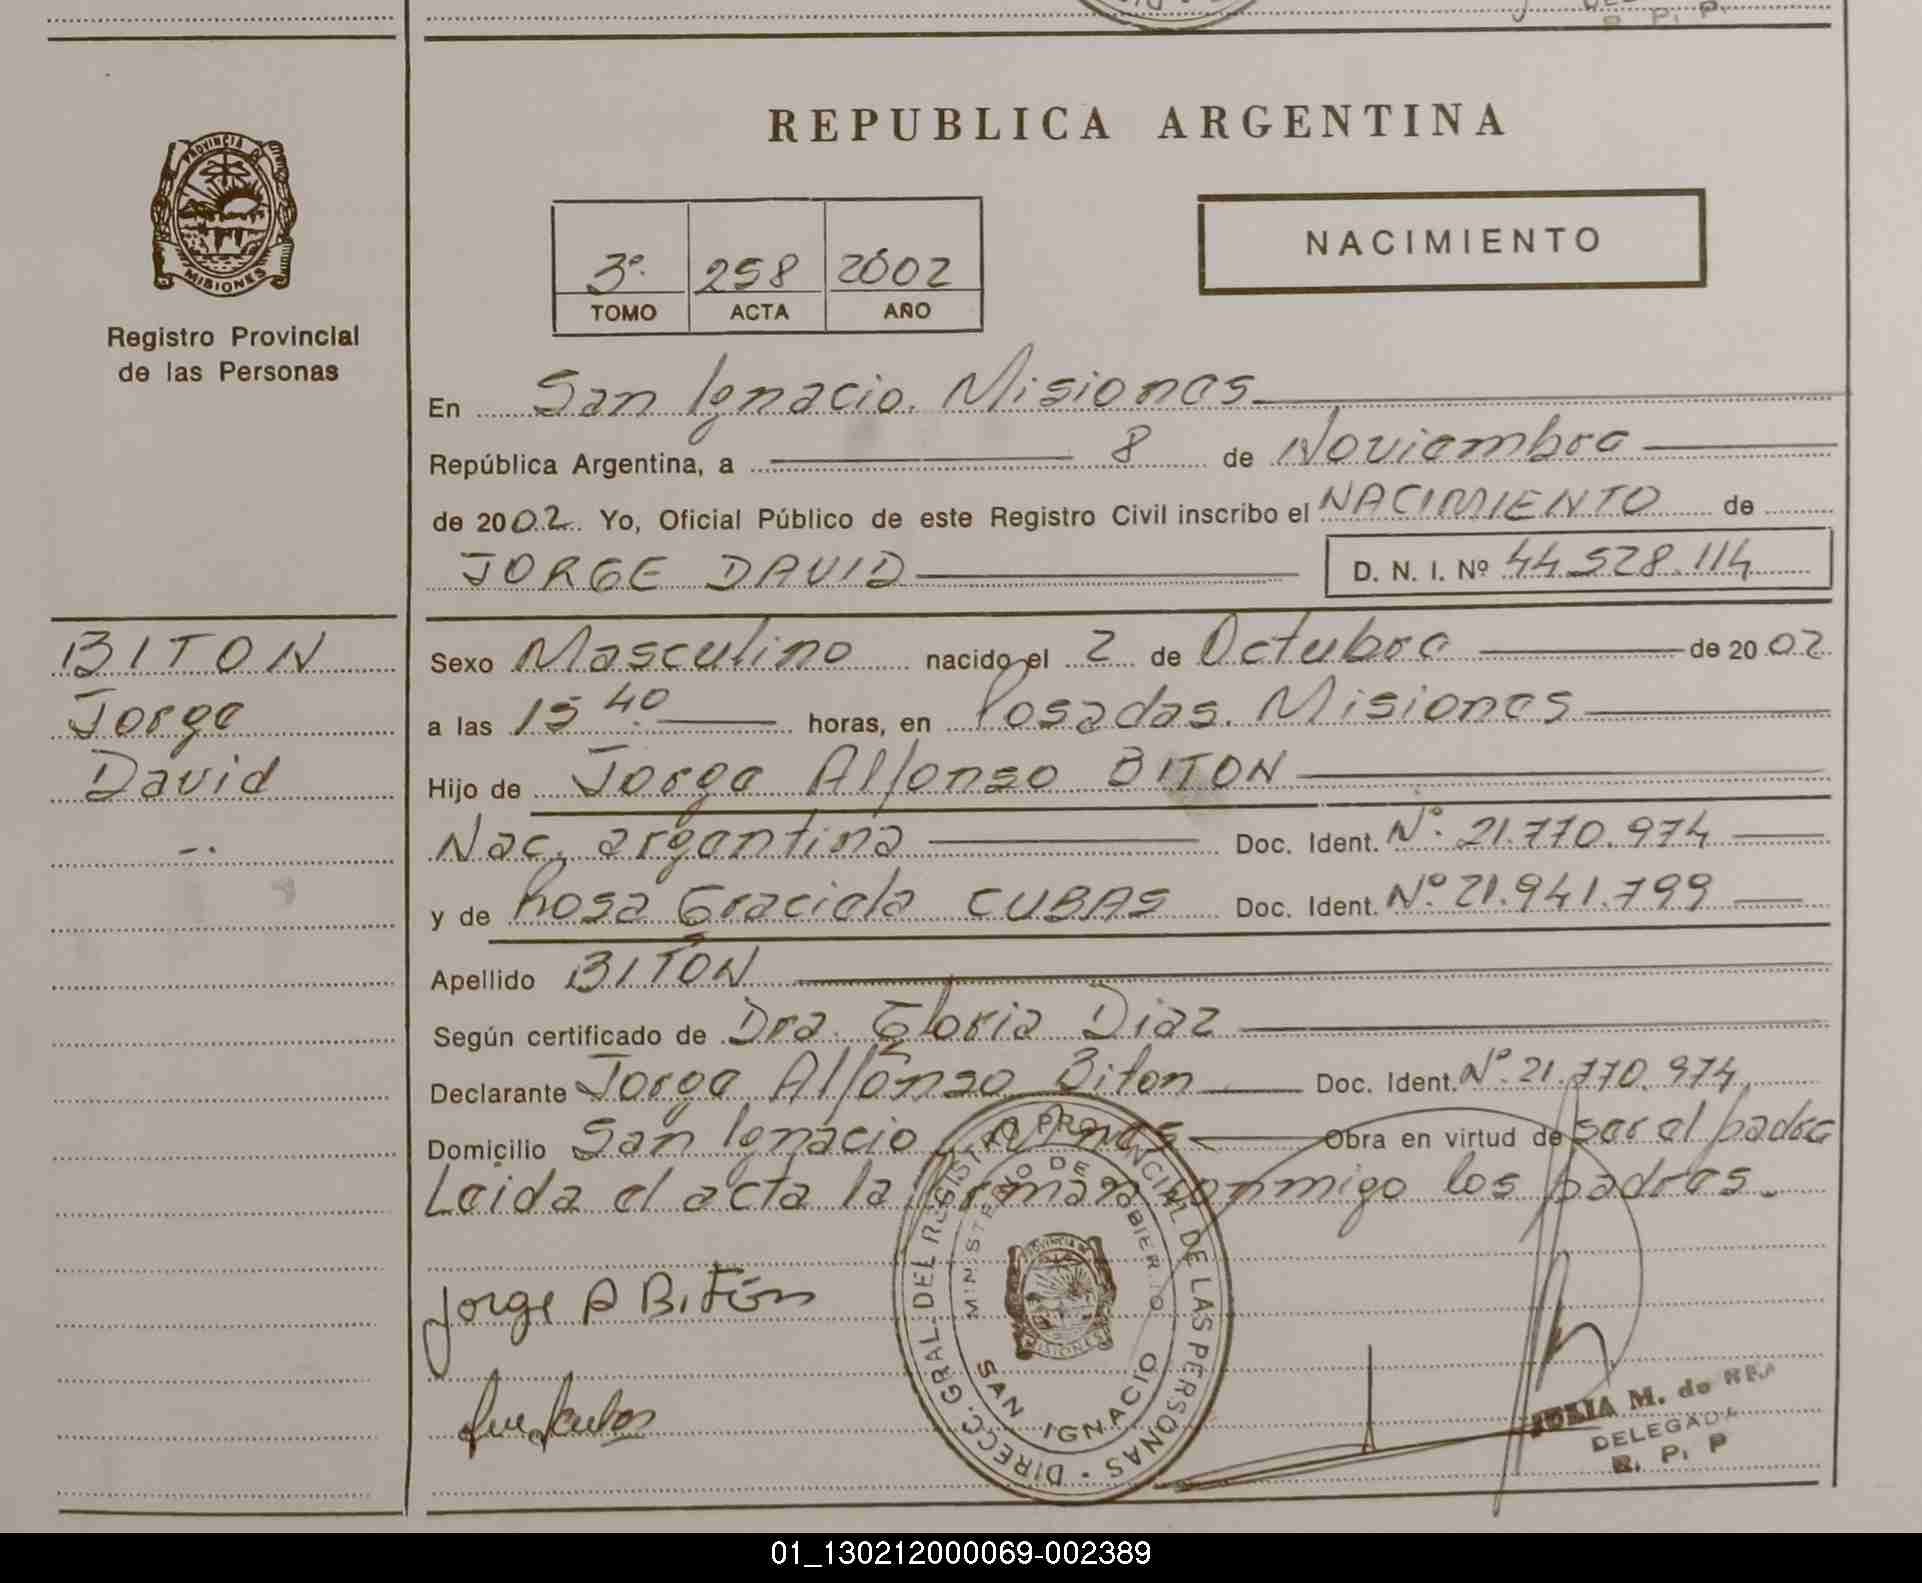 REPUBLICA ARGENTINA
PROVINCIA DE
MISIONES
Registro Provincial
de las Personas
3º. 258 2002
TOMO ACTA AÑO
NACIMIENTO
En San Ignacio. Misiones
República Argentina, a 8 de Noviembre
de 2002. Yo, Oficial Público de este Registro Civil inscribo el NACIMIENTO de
JORGE DAVID D. N. I. Nº 44.528.114
BITON
Jorge
David
-.
Sexo Masculino nacido el 2 de Octubre de 2002.
a las 15 40 horas, en Posadas. Misiones
Hijo de Jorge Alfonso BITON
Nac. argentina Doc. Ident. Nº. 21.770.974
y de Rosa Graciela CUBAS Doc. Ident. Nº. 21.941.799
Apellido BITON
Según certificado de Dra. Gloria Diaz
Declarante Jorge Alfonso Biton Doc. Ident. Nº. 21.770.974
Domicilio San Ignacio Mnes Obra en virtud de ser el padre
Leida el acta la firman conmigo los padres.
Jorge A Bitón
DIRECC. GRAL. DEL REGISTRO PROVINCIAL DE LAS PERSONAS
MINISTERIO DE GOBIERNO
PROVINCIA DE
MISIONES
SAN IGNACIO
M. de
DELEGADA
R. P. P
01_130212000069-002389